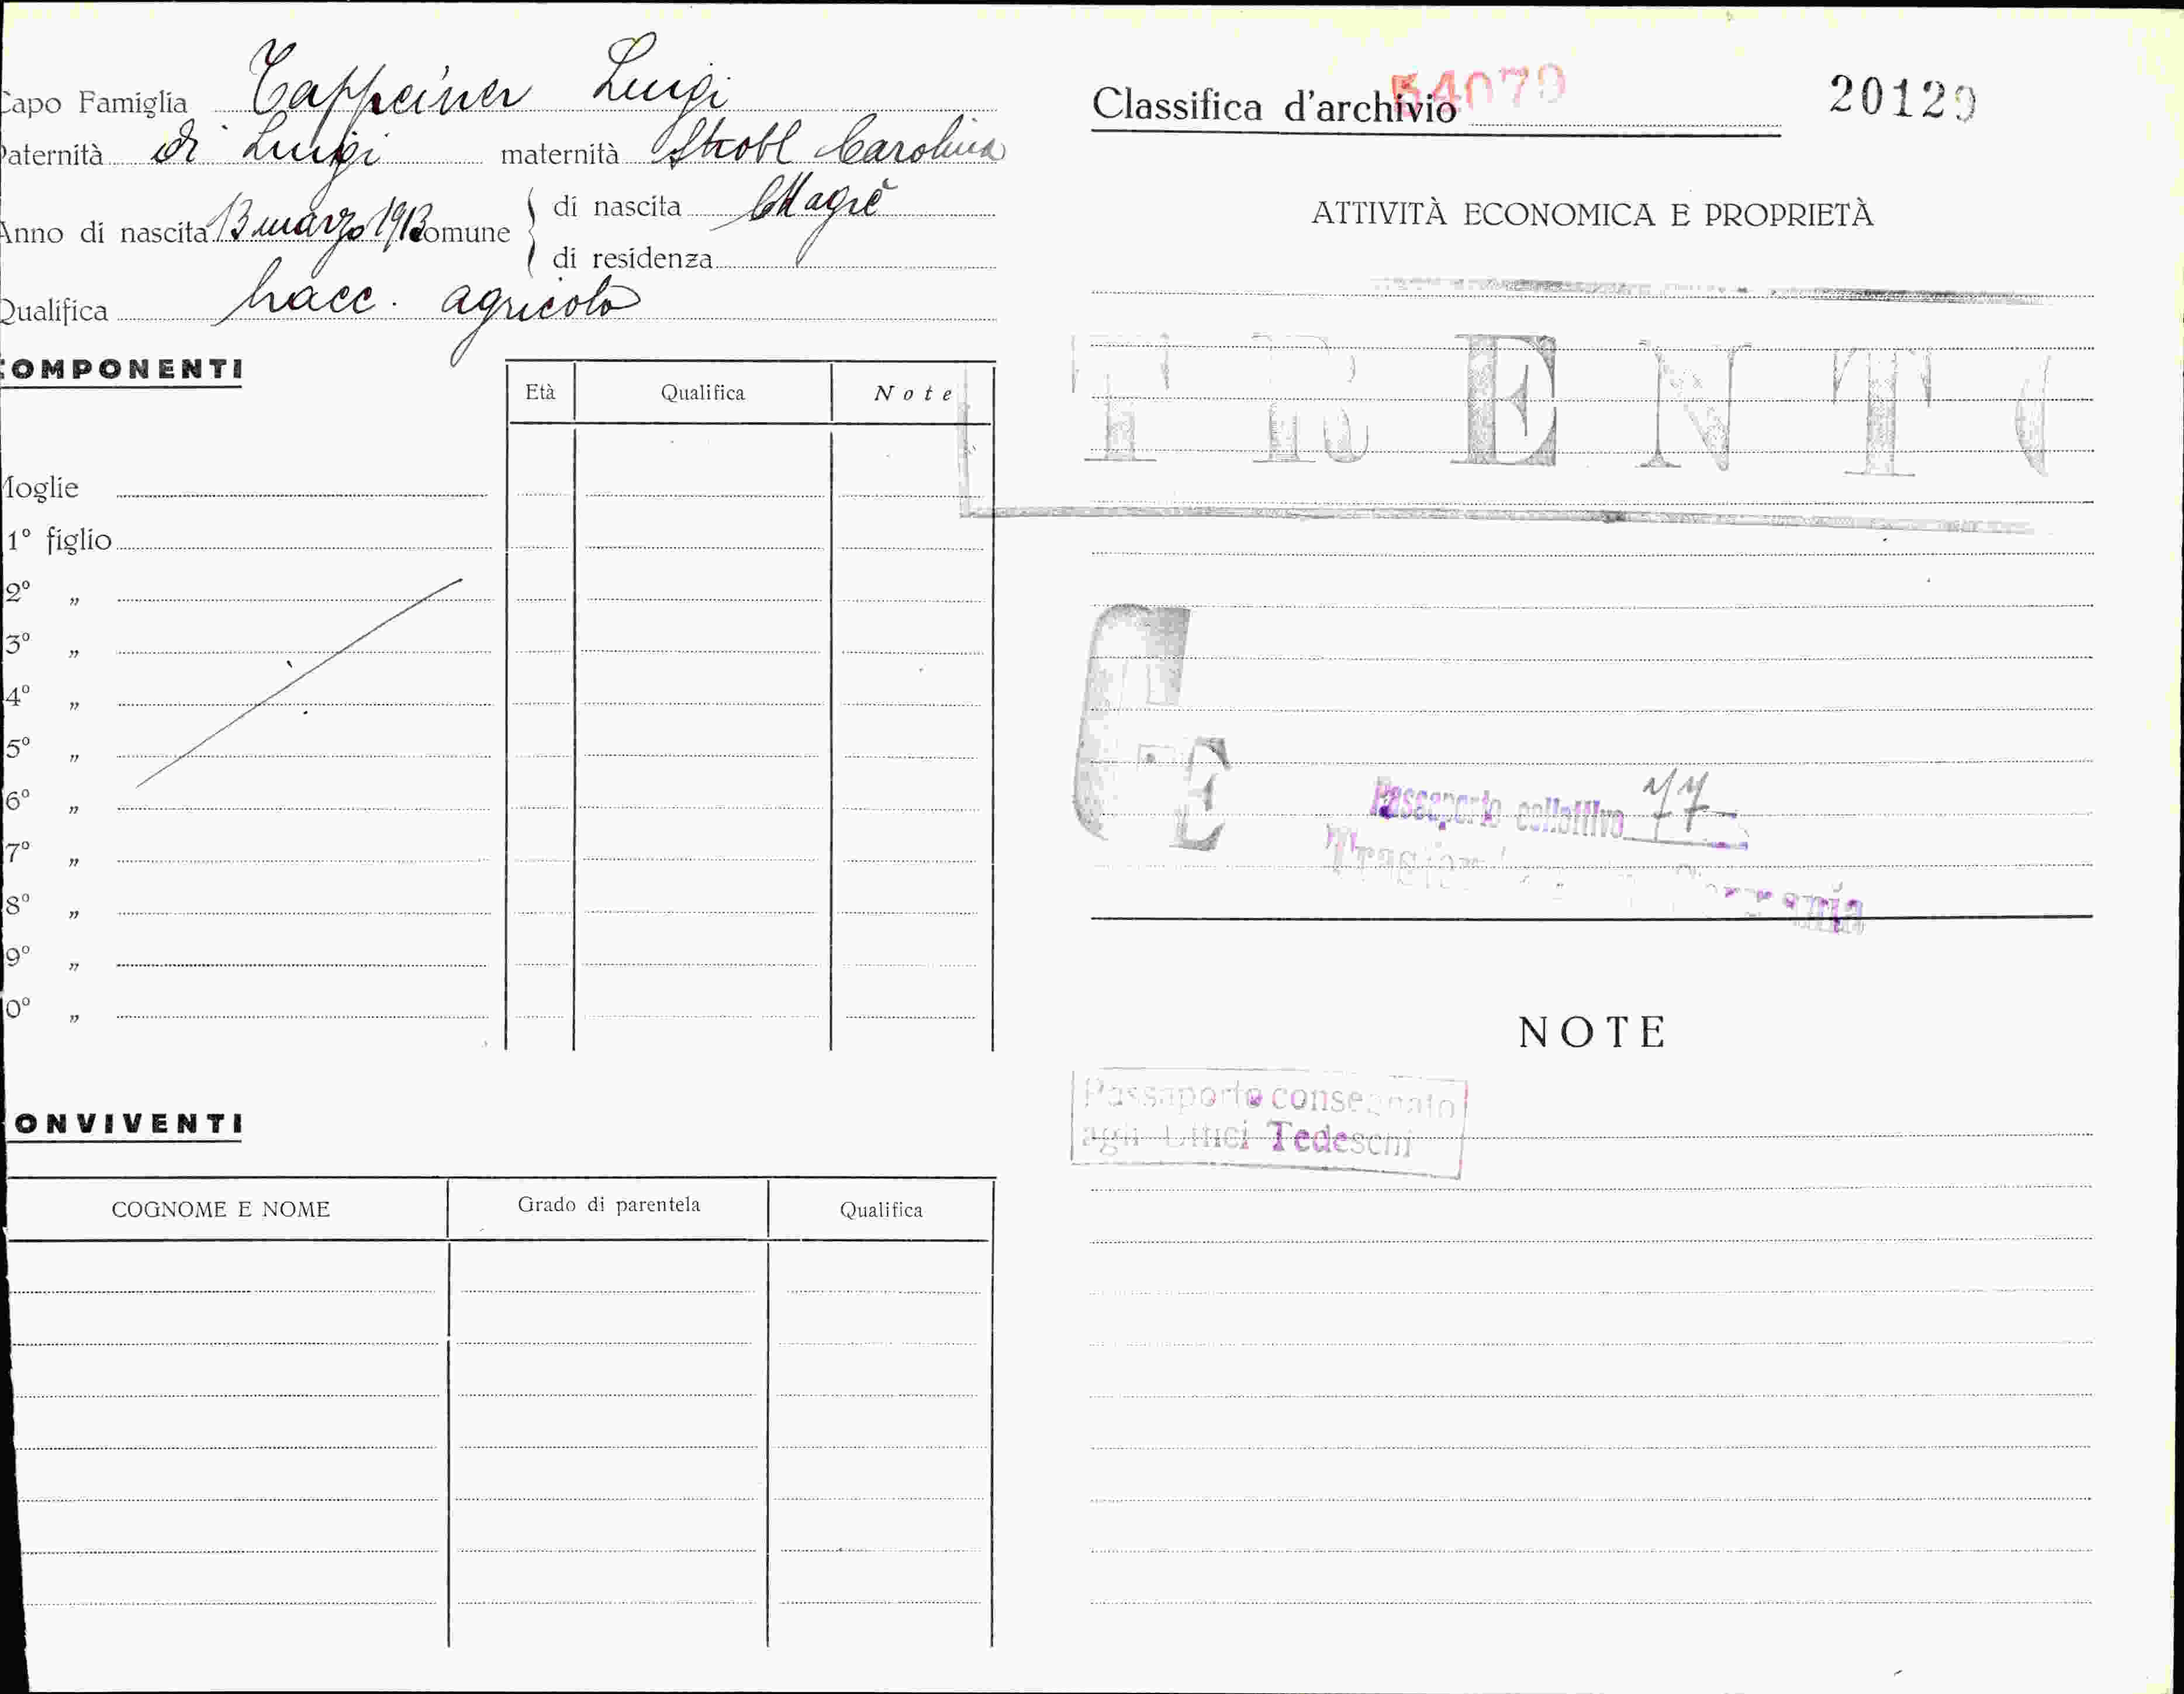 Capo Famiglia Tappeiner Luigi
Paternità di Luigi maternità Strobl Carolina
Anno di nascita 13 marzo 1913 Comune
di nascita Magrè
di residenza
Qualifica bracc. agricolo
COMPONENTI
Età Qualifica Note
Moglie
1º figlio
2º „
3º „
4º „
5º „
6º „
7º „
8º „
9º „
0º „
ONVIVENTI
COGNOME E NOME Grado di parentela Qualifica
Classifica d'archivio 54079 20129
ATTIVITÀ ECONOMICA E PROPRIETÀ
TRENTO
E
Passaporto collettivo 77
NOTE
Passaporto consegnato
agli Uffici Tedeschi